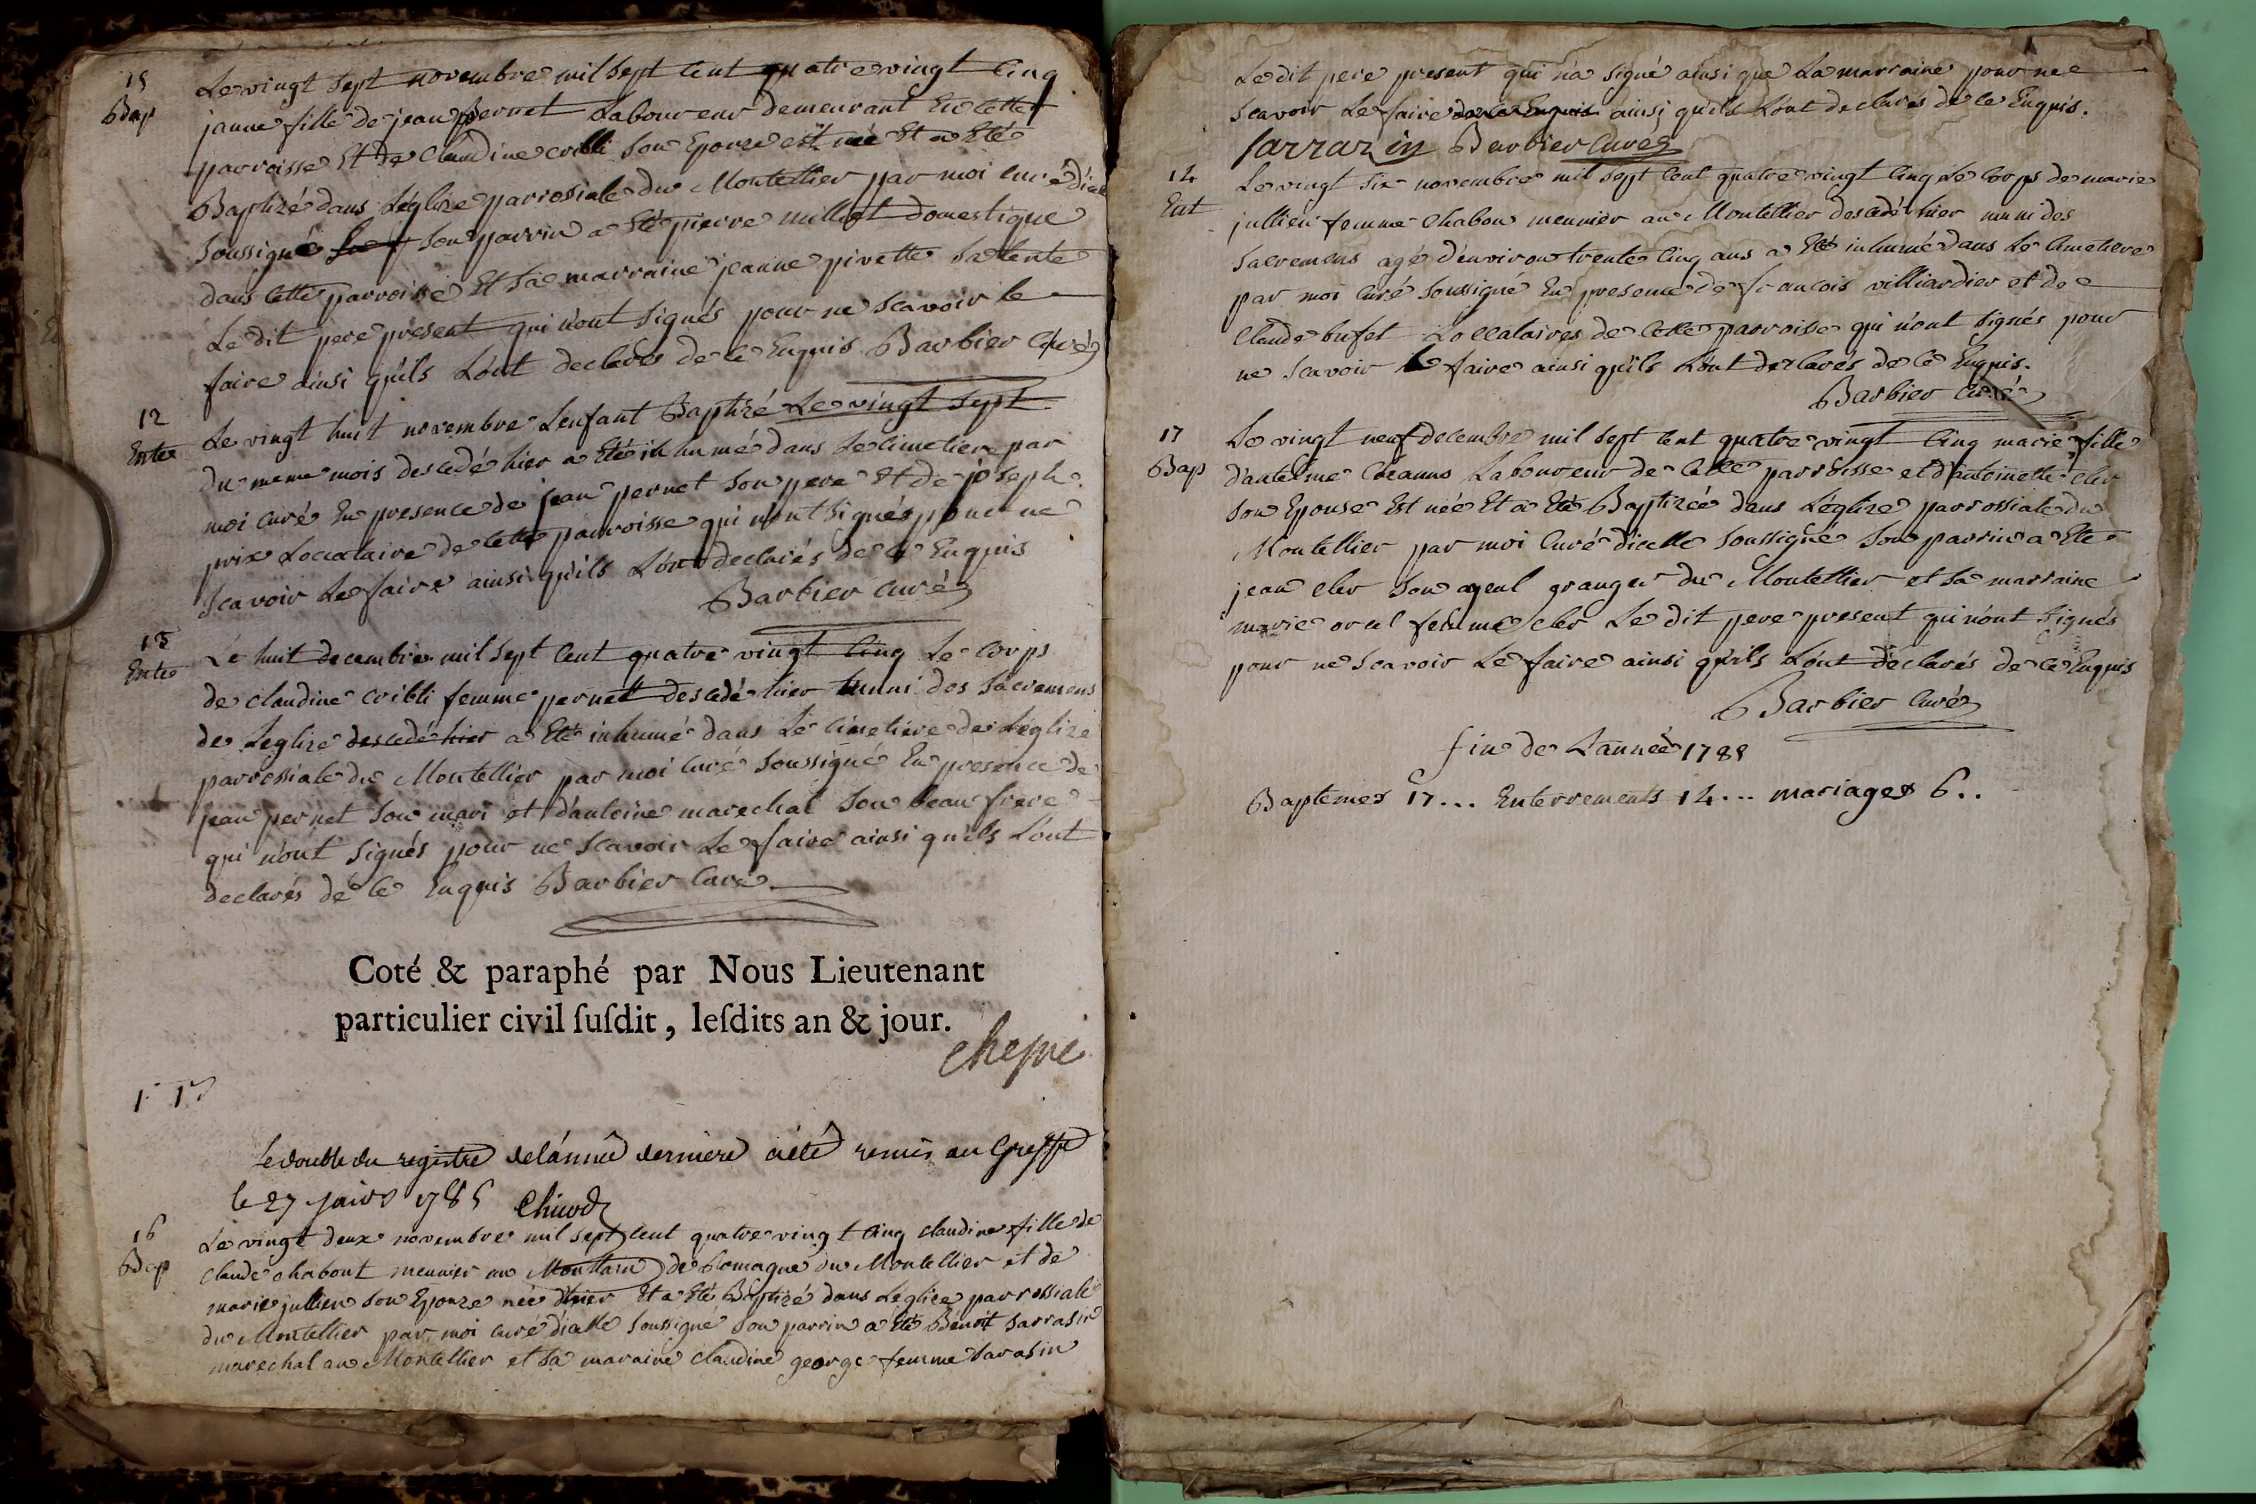 15
Bap
Le vingt sept novembre mil sept cent quatre vingt cinq
janne fille de jean pernet Laboureur demeurant En cette
parroisse Et de Claudine cribli Son Epouze est née Et a Eté
Baptizé dans Léglize parrosiale du Montellier par moi curé dicelle
Soussigné Son parrin a Eté pierre milliet domestique
dans cette parroisse Et Sa marraine jeanne pivette Sa tente
Le dit pere present qui n'ont Signés pour ne Scavoir le
faire ainsi qu'ils L'ont declarés de ce Enquis Barbier Curé
12
Ente
Le vingt huit novembre Lenfant Baptizé Le vingt Sept
du meme mois descedé hier a Eté inhumé dans Le cimetiere par
moi curé En presence de jean pernet Son pere Et de joseph
prix Locataire de cette parroisse qui n'ont Signés pour ne
Scavoir Le faire ainsi qu'ils L'ont declarés de ce Enquis
Barbier Curé
13
Ente
Le huit decembre mil sept cent quatre vingt cinq Le corps
de claudine cribli femme pernet descedé hier muni des Sacremens
de Leglize descedé hier a Eté inhumé dans Le cimetiere de Léglize
parrossiale du Montellier par moi Curé Soussigné En presence de
jean pernet Son mari et d'antoine marechal Son beau frere
qui n'ont Signés pour ne Scavoir Le faire ainsi qu'ils L'ont
declarés de ce Enquis Barbier Curé
Coté & paraphé par Nous Lieutenant
particulier civil ſuſdit, leſdits an & jour.
Le double du registre de l'année derniere a été remis au Greffe
le 27 1785
16
Bap
Le vingt deux novembre mil sept cent quatre vingt cinq claudine fille de
Claude chabout meunier au de Romagne du Montellier et de
marie jullien Son Epouze née d'hier Et a Eté Baptizé dans Leglize parrossiale
du Montellier par moi curé d'icelle Soussigné Son parrin a Eté Bénoit Sarrasin
marechal au Montellier et Sa maraine Claudine george femme Sarasin
Le dit pere present qui n'a Signé ainsi que La marraine pour ne
Scavoir Le faire de ce Enquis ainsi qu'ils L'ont declarés de ce Enquis.
Sarrazin Barbier Curé
14
Ent
Le vingt Six novembre mil Sept cent quatre vingt Cinq Le Corps de marie
jullien femme Chabou meunier au Montellier descedé hier muni des
Sacremens agé d'environ trente Cinq ans a Eté inhumé dans Le Cimetiere
par moi Curé Soussigné En presence de francois villiardier et de
Claude bufet Loccataires de Cette parroisse qui n'ont Signés pour
ne Scavoir le faire ainsi qu'ils L'ont declarés de ce Enquis.
Barbier Curé
17
Bap
Le vingt neuf decembre mil Sept Cent quatre vingt Cinq marie fille
d'antelme Laboureur de Cette parroisse et d'antoinette cler
Son Epouse Est née Et a Eté Baptizée dans Léglize parrossiale du
Montellier par moi Curé d'icelle Soussigné Son parrin a Eté
jean cler Son ayeul granger du Montellier et Sa marraine
marie femme cler Le dit pere present qui n'ont Signés
pour ne Scavoir Le faire ainsi qu'ils L'ont déclarés de ce Enquis
Barbier Curé
fin de L'année 1785
Baptemes 17... Enterrements 14... mariages 6..